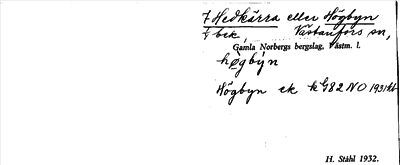 7 Hedkärra eller Högbyn
1/2 bek, Västanfors sn,
Gamla Norbergs bergslag, Västm. l.
høgbýn
Högbyn ek kG82 NO 1931
H. Ståhl 1932.